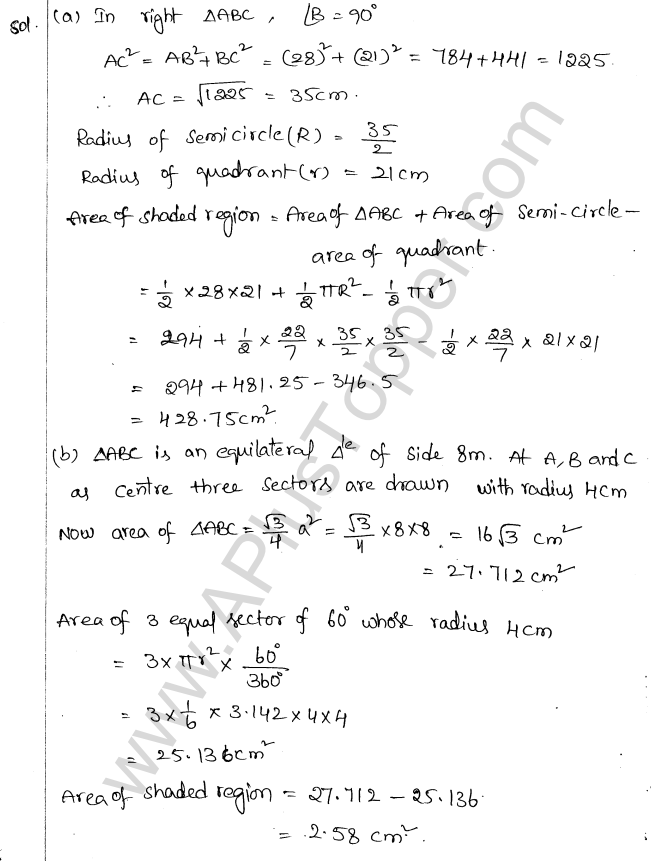 Sol. (a) In right △ABC, ∠B = 90°
AC² = AB² + BC² = (28)² + (21)² = 784 + 441 = 1225
∴ AC = √1225 = 35cm.
Radius of semicircle (R) = 35/2
Radius of quadrant (r) = 21cm
Area of shaded region = Area of △ABC + Area of semi-circle –
area of quadrant.
= 1/2 × 28 × 21 + 1/2 πR² – 1/2 πr²
= 294 + 1/2 × 22/7 × 35/2 × 35/2 – 1/2 × 22/7 × 21 × 21
= 294 + 481.25 – 346.5
= 428.75cm².
(b) △ABC is an equilateral △le of side 8m. At A, B and C
as centre three sectors are drawn with radius 4cm
Now area of △ABC = √3/4 a² = √3/4 × 8 × 8 = 16√3 cm²
= 27.712 cm²
Area of 3 equal sector of 60° whose radius 4cm
= 3 × πr² × 60°/360°
= 3 × 1/6 × 3.142 × 4 × 4
= 25.136cm²
Area of shaded region = 27.712 – 25.136
= 2.58 cm².
www.APlusTopper.com